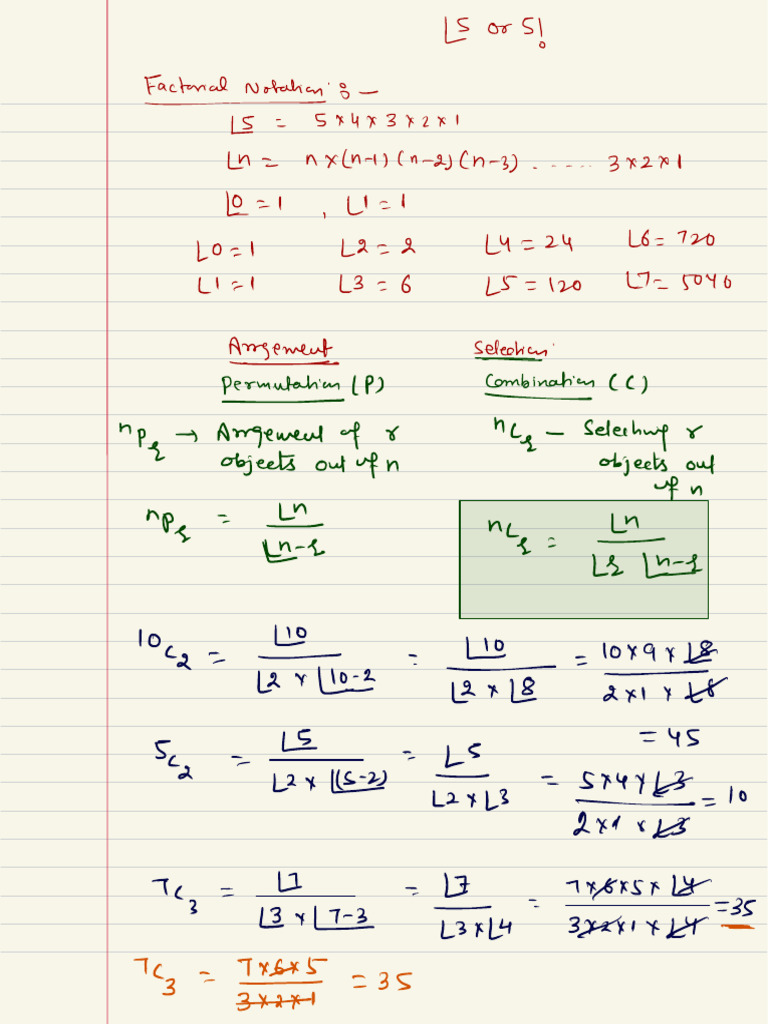 ⌊5 or 5!
Factorial Notation :-
⌊5 = 5 × 4 × 3 × 2 × 1
⌊n = n × (n-1) (n-2) (n-3) ...... 3 × 2 × 1
⌊0 = 1 , ⌊1 = 1
⌊0 = 1 ⌊2 = 2 ⌊4 = 24 ⌊6 = 720
⌊1 = 1 ⌊3 = 6 ⌊5 = 120 ⌊7 = 5040
Arrgement Selection
Permutation (P) Combination (C)
nPr → Arrgement of r
objects out of n
nCr – Selecting r
objects out
of n
nPr = ⌊n / ⌊n-r
nCr = ⌊n / ⌊r ⌊n-r
10C2 = ⌊10 / ⌊2 × ⌊10-2 = ⌊10 / ⌊2 × ⌊8 = 10 × 9 × ⌊8 / 2 × 1 × ⌊8
= 45
5C2 = ⌊5 / ⌊2 × ⌊(5-2) = ⌊5 / ⌊2 × ⌊3 = 5 × 4 × ⌊3 / 2 × 1 × ⌊3 = 10
7C3 = ⌊7 / ⌊3 × ⌊7-3 = ⌊7 / ⌊3 × ⌊4 = 7 × 6 × 5 × ⌊4 / 3 × 2 × 1 × ⌊4 = 35
7C3 = 7 × 6 × 5 / 3 × 2 × 1 = 35